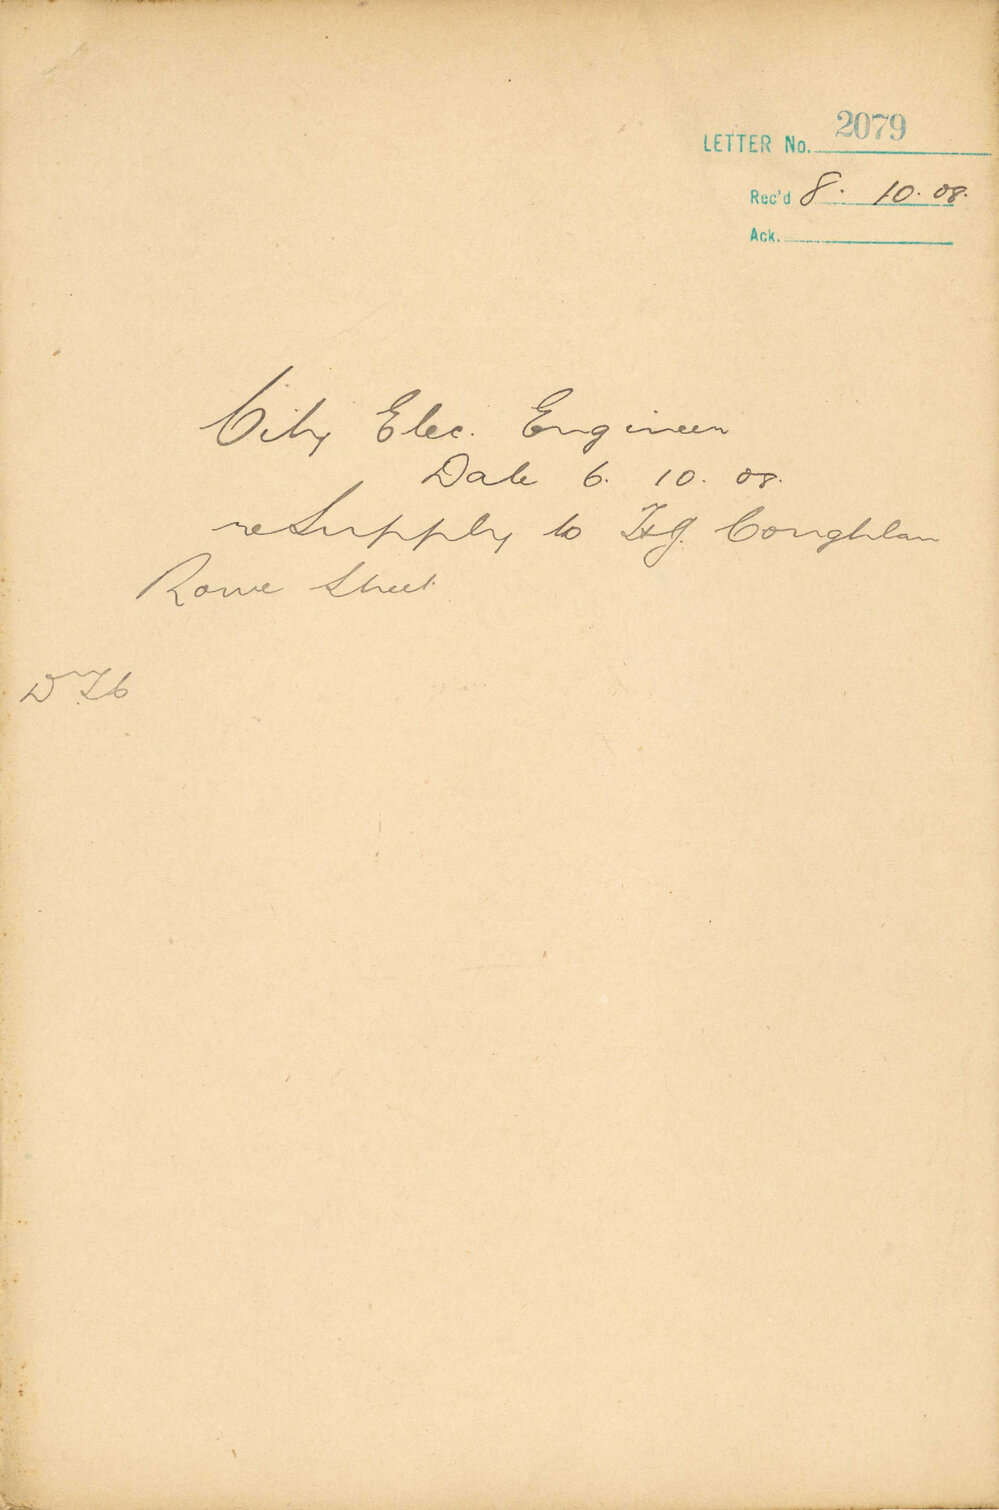 LETTER No. 2079
Rec'd 8. 10. 08.
Ack.
City Elec. Engineer
Date 6. 10. 08.
re Supply to H J. Coughlan
Rowe Street